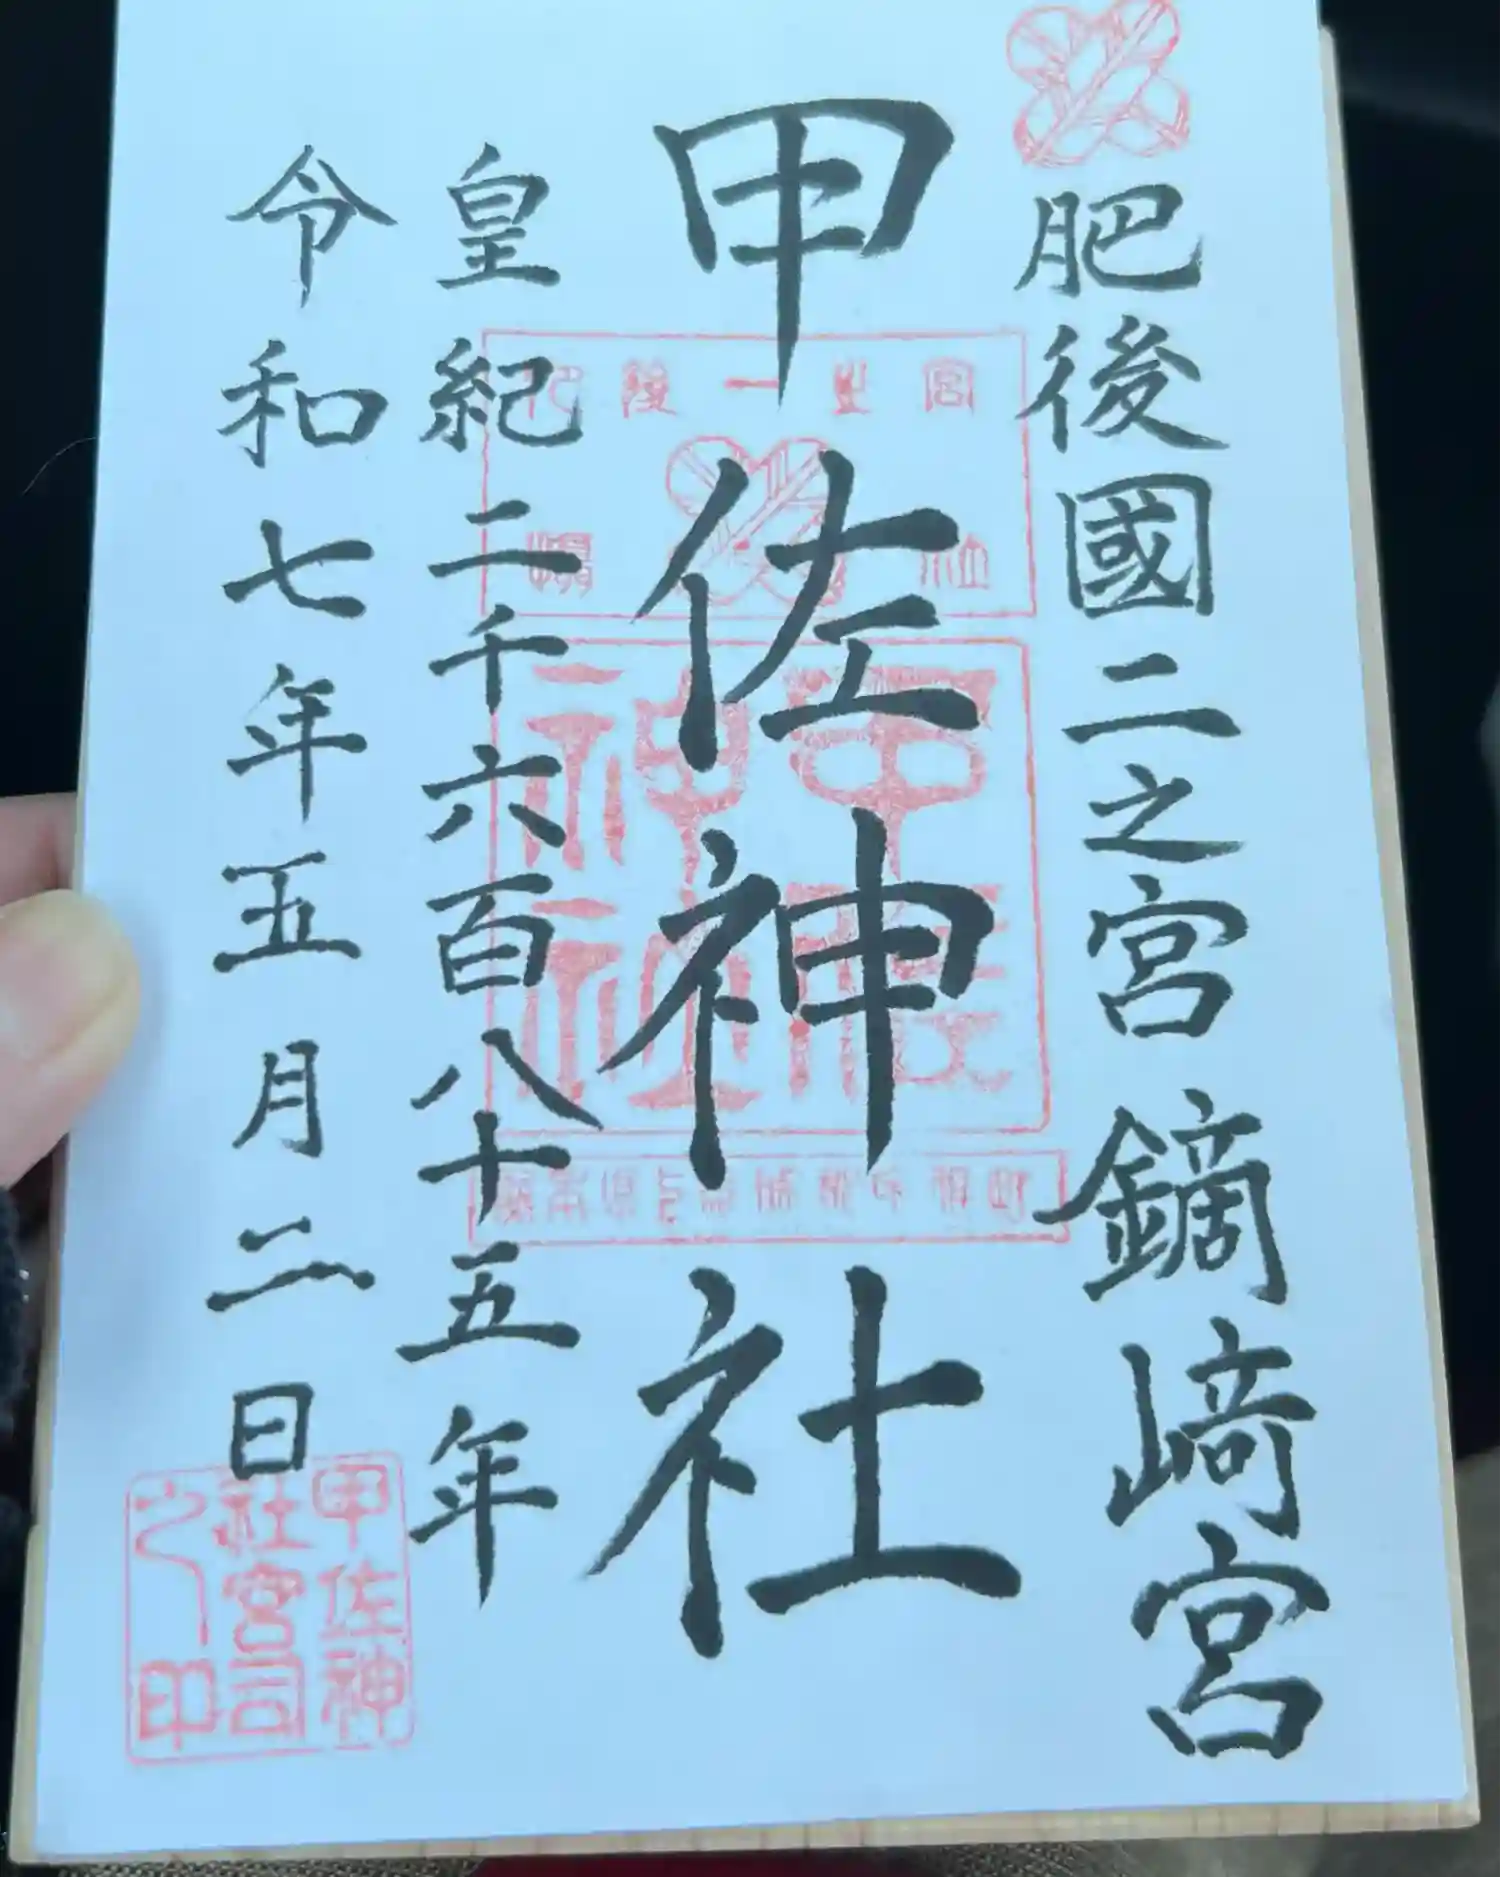 肥後國二之宮 鏑﨑宮
甲佐神社
皇紀二千六百八十五年
令和七年五月二日
甲佐神社
甲佐神
社宮司
之印